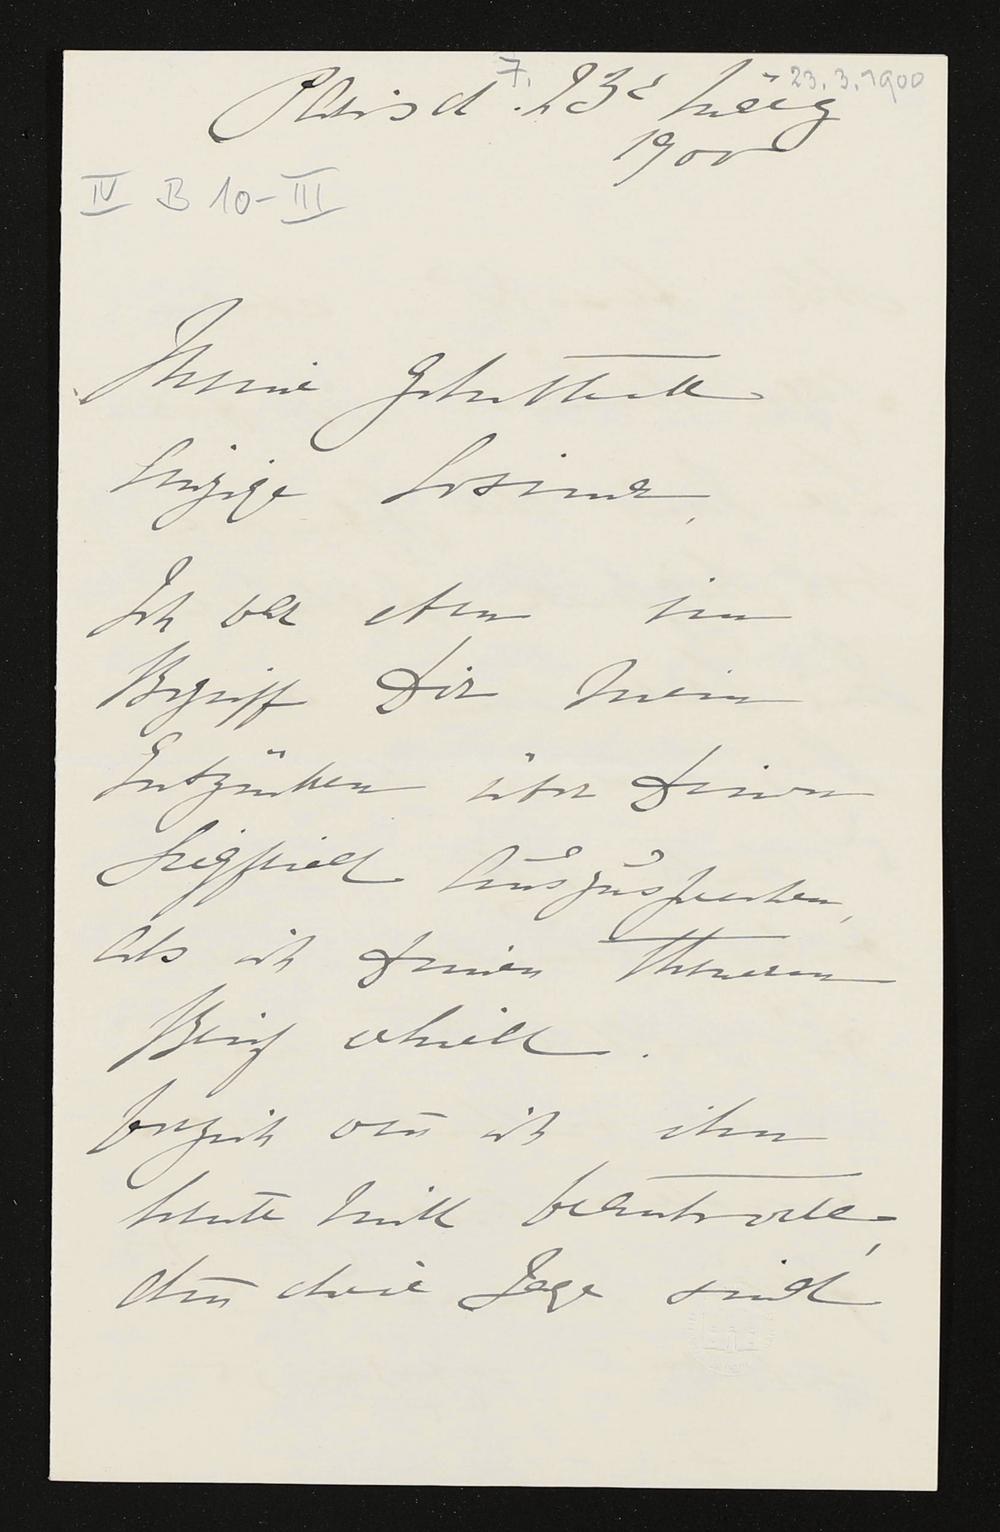 Paris d. 23t März
7.
23.3.1900
1900
IV B 10-III
Meine Geliebteste
Einzige Cosima,
Ich war eben im
Begriff Dir mein
Entzücken über Deinen
Siegfried auszusprechen,
als ich Deinen theueren
Brief erhielt.
Verzeih wen̄ ich ihn
heute nicht beantworte,
den̄ diese Tage sind